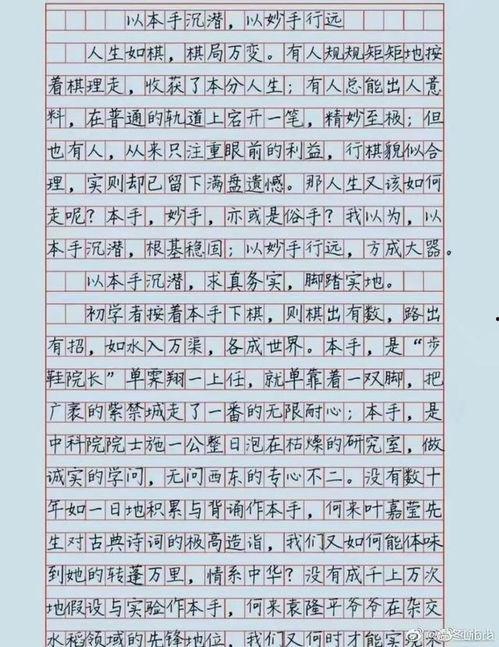 以本手沉潜，以妙手行远
人生如棋，棋局万变。有人规规矩矩地按
着棋理走，收获了本分人生；有人总能出人意
料，在普通的轨道上宕开一笔，精妙至极；但
也有人，从来只注重眼前的利益，行棋貌似合
理，实则却已留下满盘遗憾。那人生又该如何
走呢？本手，妙手，亦或是俗手？我以为，以
本手沉潜，根基稳固；以妙手行远，方成大器。
以本手沉潜，求真务实，脚踏实地。
初学者按着本手下棋，则棋出有数，路出
有招，如水入万渠，各成世界。本手，是“步
鞋院长”单霁翔一上任，就单靠着一双脚，把
广袤的紫禁城走了一番的无限耐心；本手，是
中科院院士施一公整日泡在枯燥的研究室，做
诚实的学问，无问西东的专心不二。没有数十
年如一日地积累与背诵作本手，何来叶嘉莹先
生对古典诗词的极高造诣，我们又如何能体味
到她的转蓬万里，情系中华？没有成千上万次
地假设与实验作本手，何来袁隆平爷爷在杂交
水稻领域的先锋地位，我们又何时才能实院禾